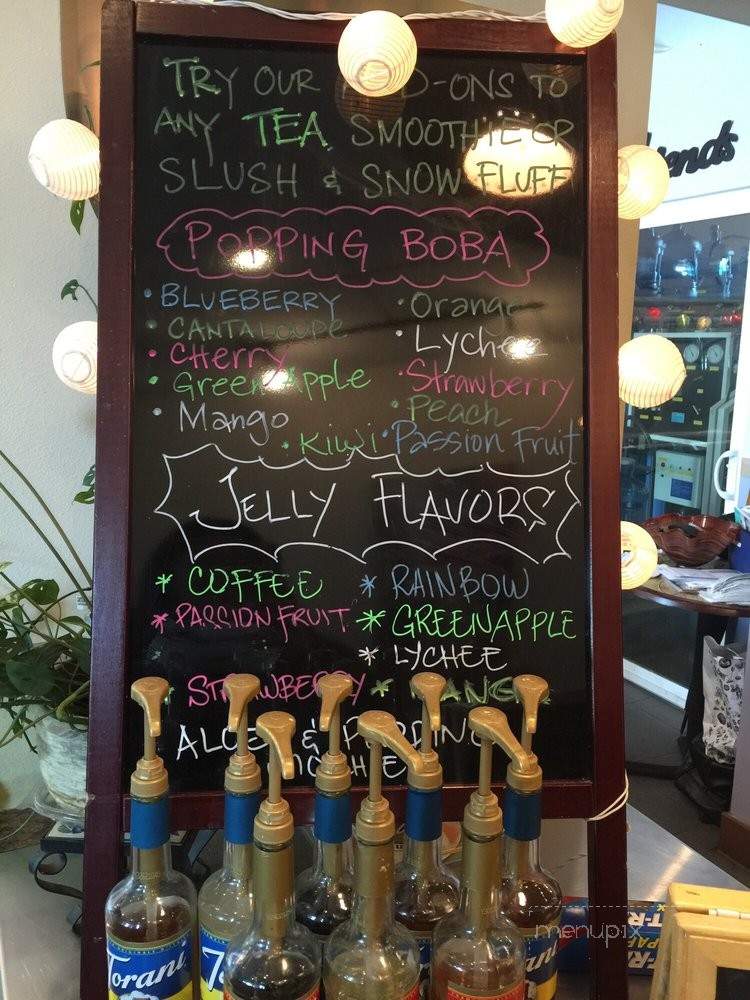 TRY OUR ADD-ONS TO
ANY TEA SMOOTHIE OR
SLUSH & SNOW FLUFF
POPPING BOBA
• BLUEBERRY
• CANTALOUPE
• CHERRY
• Green Apple
• Mango
• Kiwi
• Orange
• Lychee
• Strawberry
• Peach
• Passion Fruit
JELLY FLAVORS
* COFFEE
* PASSION FRUIT
* STRAWBERRY
* RAINBOW
* GREENAPPLE
* LYCHEE
* MANGO
ALOE & PUDDING
Torani
Torani
menupix